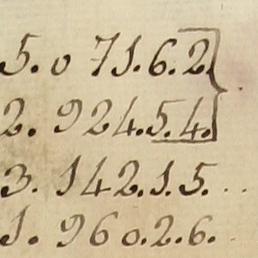 5. 0 71.6.2.
2. 924.5.4.
3. 142.1.5. . .
1. 960.2.6.